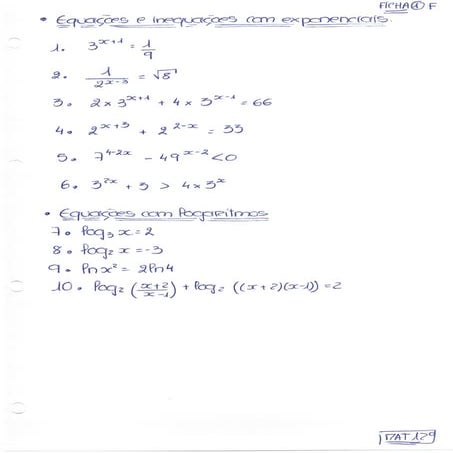 FICHA ① F
• Equações e inequações com exponenciais.
1. 3^{x+1} = 1/9
2. 1/2^{x-3} = √8
3. 2 x 3^{x+1} + 4 x 3^{x-1} = 66
4. 2^{x+3} + 2^{2-x} = 33
5. 7^{4-2x} - 49^{x-2} < 0
6. 3^{2x} + 3 > 4 x 3^{x}
• Equações com logaritmos
7. log₃ x = 2
8. log₂ x = -3
9. ln x² = 2 ln 4
10. log₂ ((x+2)/(x-1)) + log₂ ((x+2)(x-1)) = 2
MAT 129